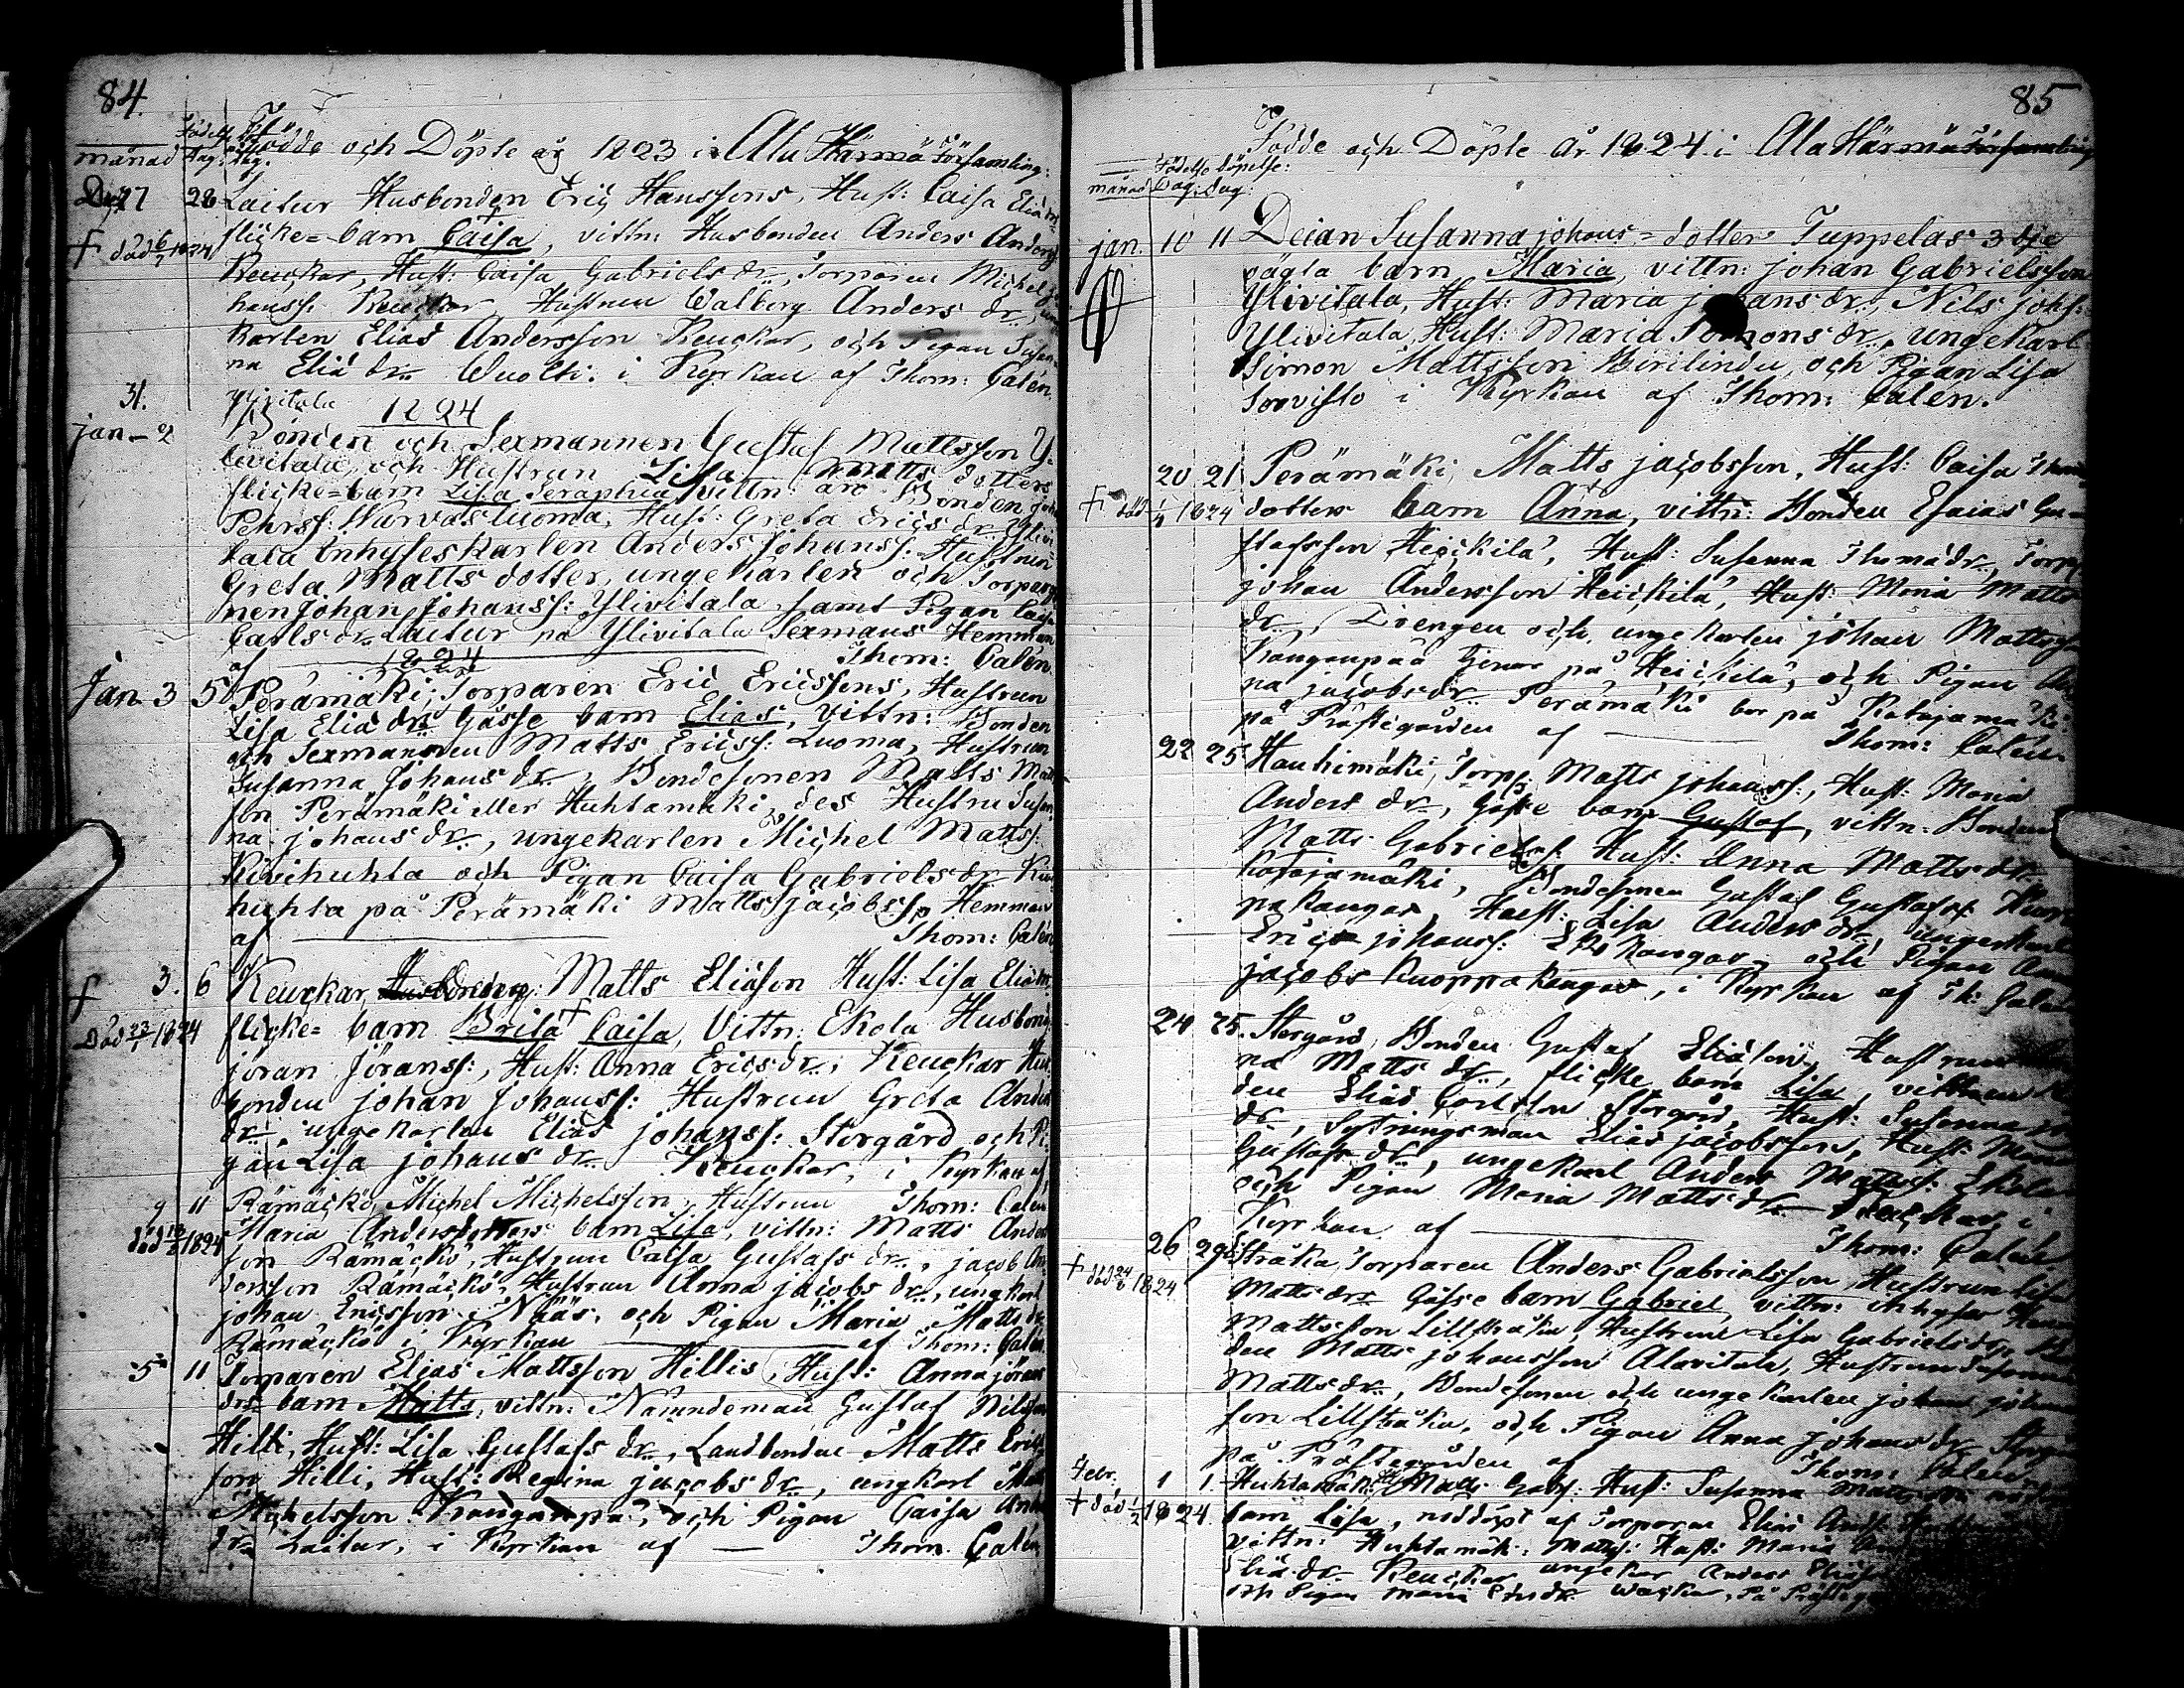 84.
Födde och Döpte år 1823 i Ala Härmä Församling:
månad Födelse dag: döp: dag.
Decb 27 28 Laitur Husbonden Eric Hanssons, Hust: Caisa Elià dr
† död 6/7 1824 flicke=barn Caisa, vittn: Husbonden Anders Anderss:
Keuckar, Hust: Caisa Gabriels dr., Torparen Michel Jo
hanss: Keuckar Hustrun Walborg Anders dr., unge
karlen Elias Andersson Keuckar, och Pigan Susan
na Elià dr. Wuolti. i Kyrkan af Thom: Calén.
31. Ylivitala 1824
jan - 2 Bonden och Sexmannen Gustaf Mattsson Y-
livitala, och Hustrun Lisa Matts dotters
flicke=barn Lisa Seraphia, vittn: äro Bonden Joh
Pehrss: Warvasluoma, Hust: Greta Erics dr. Ylivi
tala Inhyseskarlen Anders Johanss: Hustrun
Greta Matts dotter, ungekarlen och Torpare
nen Johan Johanss: Ylivitala, samt Pigan Caisa
Carls dr. Laitur på Ylivitala Sexmans Hemman
af Thom: Calén.
1824
Jan. 3 5 Perämäki, Torparen Eric Ericssons, Hustrun
Lisa Elià dr. Gosse barn Elias, Vittn: Bonden
och Sexmannen Matts Ericss: Luoma, Hustrun
Susanna Johans dr., Bondesonen Matts Matts
son Perämäki eller Huhtamäki, des Hustru Susan
na johans dr., ungekarlen Michel Matts:
Kivihuhta och Pigan Caisa Gabriels dr. Kivi
huhta på Perämäki Matts Jacobss: Hemman
af Thom: Calén
† 3. 6 Keuckar, Husbonden: Matts Eliäson Hust: Lisa Elià dr.
Död 23/1 1824 flicke= barn Brita Caisa, Vittn: Ekola Husbond
jöran Jöranss:, Hust: Anna Erics dr., Keuckar Hus
bonden johan Johanss: Hustrun Greta Anders
dr., ungekarlen Elias johanss: Storgård och Pi
gan Lisa johans dr. Keuckar, i Kyrkan af
9 11 Rämäckö, Michel Michelsson, Hustrun Thom: Calén
död 1824 Maria Andersdotters barn Lisa, vittn: Matts Anders
son Rämäckö, Hustrun Caisa Gustafs dr., jacob An
dersson Rämäckö, Hustrun Anna jacobs dr., ungkarl
johan Ericsson i Nääs, och Pigan Maria Matts dr
Rämäckö i Kyrkan af Thom: Calén.
5 11 Torparen Elias Mattsson Hillis, Hust: Anna jörans
drs. barn Matts, vittn: Nämndeman Gustaf Nilsson
Hilli, Hust: Lisa Gustafs dr., Landbonden Matts Erics
son Hilli, Hust: Regina jacobs dr., ungkarl Matts
Michelsson Kanganpä, och Pigan Caisa Anders
dr. Laitur, i Kyrkan af Thom. Calén,
85
Födde och Döpte år 1824 i Ala Härmä Församling
månad Födelse Dag: döpelse: dag:
jan. 10 11 Deian Susanna johans=dotter Tuppelas 3 dje
oägta barn Maria, vittn: johan Gabrielsson
Ylivitala, Hust: Maria johans dr., Nils johs:
Ylivitala Hust: Maria Simons dr., ungekarl
Simon Mattsson Birilindu, och Pigan Lisa
Sorvisto i Kyrkan af Thom: Calén.
20 21 Perämäki, Matts jacobsson, Hust: Caisa Thom
† död 1/4 1824 dotters barn Anna, vittn: Bonden Esaias Gu-
stafsson Heickilä, Hust: Susanna Thomä dr., Torp
johan Andersson Heickilä, Hust: Maria Matts
dr., Drengen och ungekarlen johan Mattss
Kangaupää tjenar på Heickilä, och Pigan An
na jacobs dr. Perämäki bor på Katajamäki
på Prästegården af Thom: Calén.
22 25 Hauhimäki, Torp: Matts johanss:, Hust: Maria
Anders dr., Gosse barn Gustaf, vittn: Bonden
Matts Gabrielss: Hust: Anna Matts dr.
Katajamäki, Bondesonen Gustaf Gustafss: Kuop
pakangas, Hust: Lisa Anders dr., ungekarl
Eric johanss: kangas, och Pigan Anna
jacobs Kuoppakangas, i Kyrkan af Th: Calén
24 25. Storgård, Bonden Gustaf Eliäson, Hustrun
na Matts dr., flicke barn Lisa, vittnen
den Elias Carlsson Storgård, Hust: Susanna
dr., Sytningsman Elias jacobsson, Hust: Maria
Gustafs dr., ungekarl Anders Matts: Ekola
och Pigan Maria Matts dr. Keuckar, i
Kyrkan af Thom: Calén.
26 29 Stråka, Torparen Anders Gabrielsson, Hustrun Lisa
† död 24/6 1824 Matts drs. Gosse barn Gabriel, vittn: inhyses
Mattsson Lillstråka, Hustrun Lisa Gabriels dr., Bon
den Matts johansson Alavitala, Hustrun Susanna
Matts dr., Bondesonen och ungekarlen johan johans
son Lillstråka, och Pigan Anna johans dr.
på Prästegården af Thom: Calén.
Febr. 1 1. Huhtamäki, Matts Gabs: Hust: Susanna Matts
† död 1/2 1824. barn Lisa, nöddöpt af Torparen Elias Anders
vittn: Huhtamäki: Mattss: Hust: Maria
Elià dr. Keuckar ungekar Anders
och Pigan Maria dr. på Präste